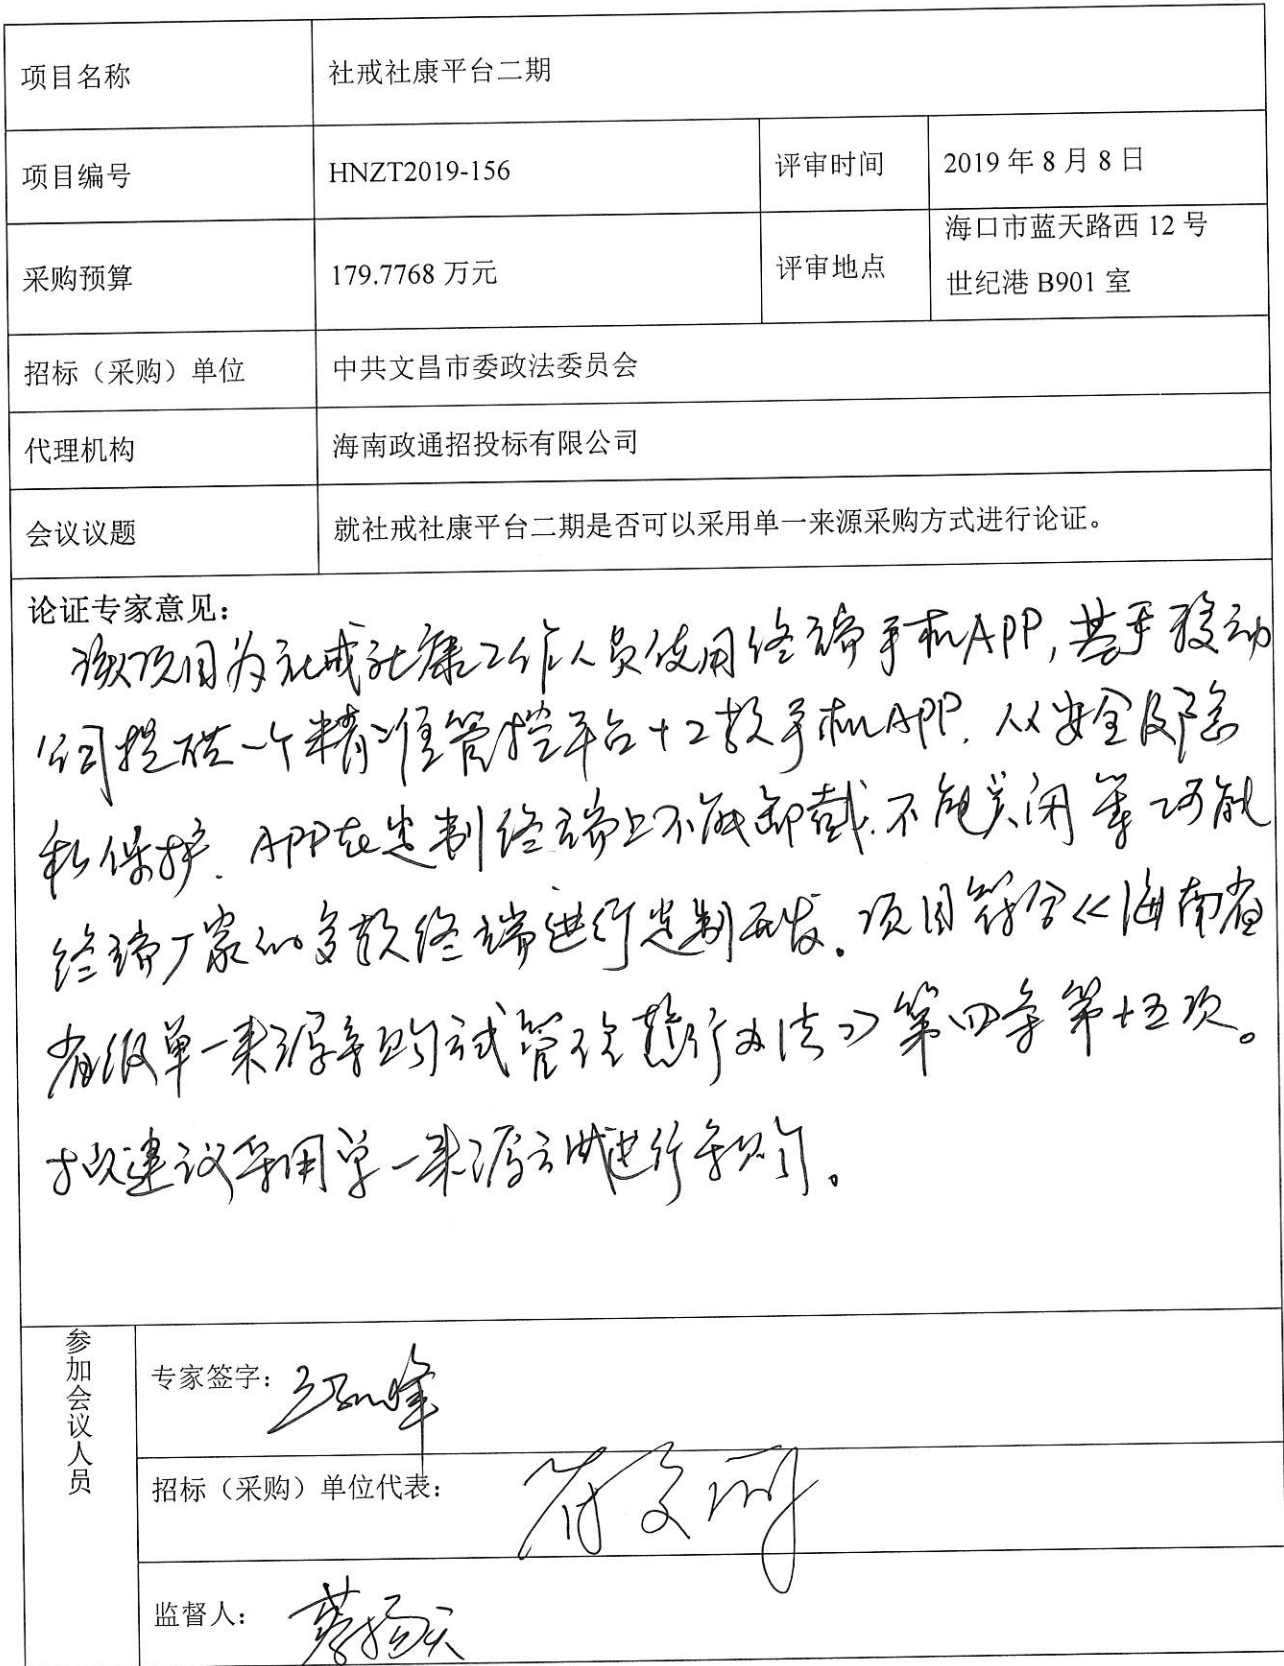 项目名称 社戒社康平台二期
项目编号 HNZT2019-156 评审时间 2019 年 8 月 8 日
采购预算 179.7768 万元 评审地点 海口市蓝天路西 12 号
世纪港 B901 室
招标（采购）单位 中共文昌市委政法委员会
代理机构 海南政通招投标有限公司
会议议题 就社戒社康平台二期是否可以采用单一来源采购方式进行论证。
论证专家意见：
该项目为社戒社康工作人员使用终端手机APP，基于移动
公司提供一个精准管控平台+2款手机APP．从安全及隐
私保护．APP在定制终端上不能卸载．不能关闭等功能
终端厂家的多款终端进行定制开发。项目符合《海南省
省级单一来源采购试管理暂行办法》第四条第十五项。
故建议采用单一来源方式进行采购。
参加会议人员
专家签字：
招标（采购）单位代表：
监督人：